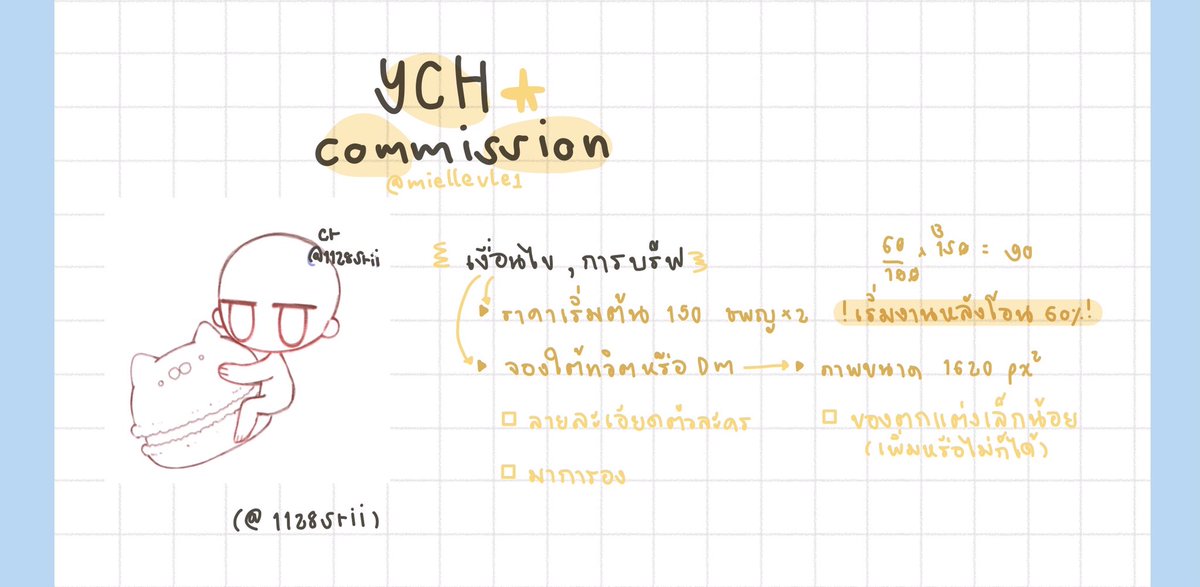 YCH
commission
@miellevle1
cr
@1128srii
(@ 1128srii)
เงื่อนไข , การบรีฟ
ราคาเริ่มต้น 150 ชพญ×2
จองใต้ทวิตหรือ DM
ลายละเอียดตัวละคร
มาการอง
60/100 × 150 = 90
3
!เริ่มงานหลังโอน 60%!
ภาพขนาด 1620 px²
ของตกแต่งเล็กน้อย
(เพิ่มหรือไม่ก็ได้)